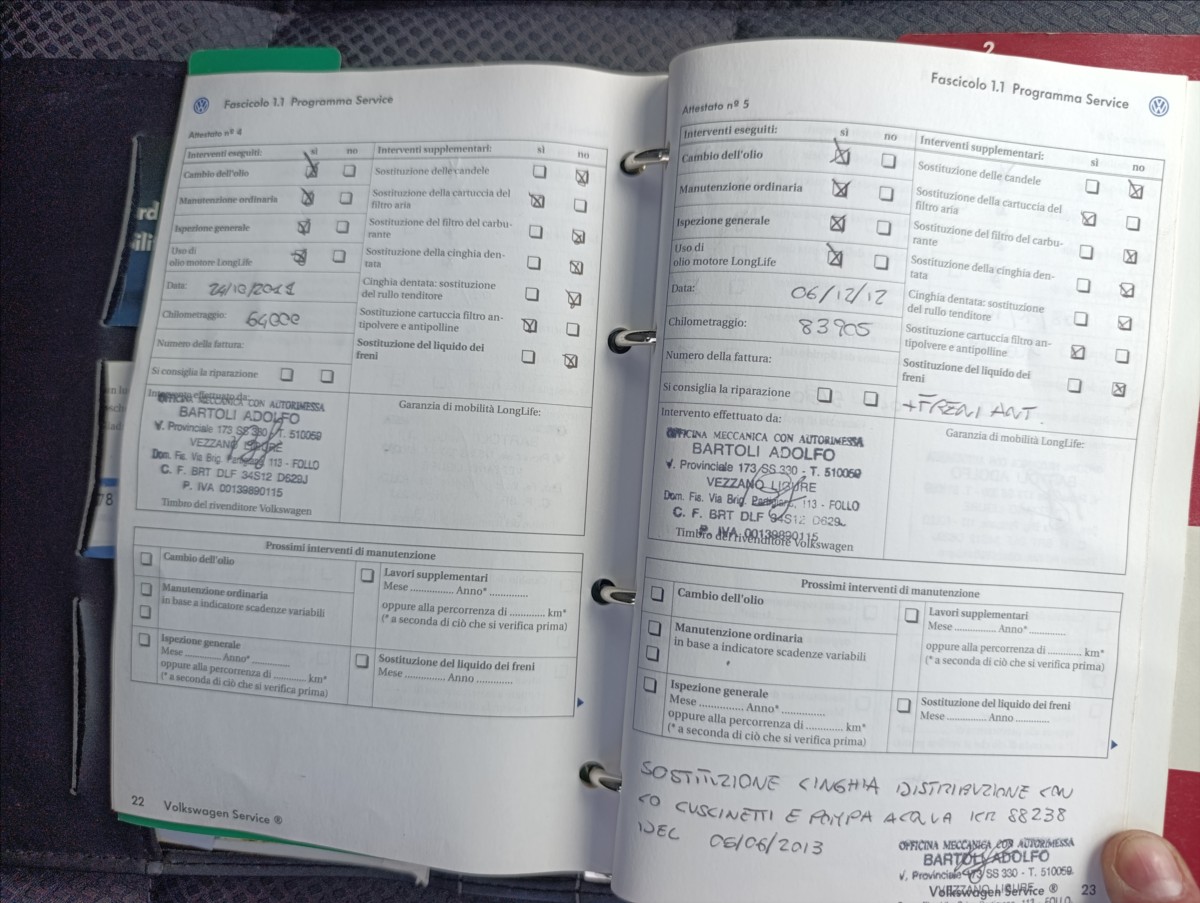 Fascicolo 1.1 Programma Service
Attestato nº 4
Interventi eseguiti: sì no
Interventi supplementari: sì no
Cambio dell'olio
Manutenzione ordinaria
Ispezione generale
Uso di
olio motore LongLife
Data: 24/10/2011
Chilometraggio: 64000
Numero della fattura:
Si consiglia la riparazione
Sostituzione delle candele
Sostituzione della cartuccia del
filtro aria
Sostituzione del filtro del carbu-
rante
Sostituzione della cinghia den-
tata
Cinghia dentata: sostituzione
del rullo tenditore
Sostituzione cartuccia filtro an-
tipolvere e antipolline
Sostituzione del liquido dei
freni
Intervento effettuato da:
OFFICINA MECCANICA CON AUTORIMESSA
BARTOLI ADOLFO
V. Provinciale 173 SS 330 - T. 510059
VEZZANO LIGURE
Dom. Fis. Via Brig. Partigiane, 113 - FOLLO
C. F. BRT DLF 34S12 D629J
P. IVA 00139890115
Timbro del rivenditore Volkswagen
Garanzia di mobilità LongLife:
Prossimi interventi di manutenzione
Cambio dell'olio
Manutenzione ordinaria
in base a indicatore scadenze variabili
Ispezione generale
Mese .............. Anno* ..............
oppure alla percorrenza di ............ km*
(* a seconda di ciò che si verifica prima)
Lavori supplementari
Mese .............. Anno* ..............
oppure alla percorrenza di ............ km*
(* a seconda di ciò che si verifica prima)
Sostituzione del liquido dei freni
Mese .............. Anno ..............
22 Volkswagen Service ®
2
Fascicolo 1.1 Programma Service
Attestato nº 5
Interventi eseguiti: sì no
Interventi supplementari: sì no
Cambio dell'olio
Manutenzione ordinaria
Ispezione generale
Uso di
olio motore LongLife
Data: 06/12/12
Chilometraggio: 83905
Numero della fattura:
Si consiglia la riparazione
Sostituzione delle candele
Sostituzione della cartuccia del
filtro aria
Sostituzione del filtro del carbu-
rante
Sostituzione della cinghia den-
tata
Cinghia dentata: sostituzione
del rullo tenditore
Sostituzione cartuccia filtro an-
tipolvere e antipolline
Sostituzione del liquido dei
freni
+FRENI ANT.
Intervento effettuato da:
OFFICINA MECCANICA CON AUTORIMESSA
BARTOLI ADOLFO
V. Provinciale 173 SS 330 - T. 510059
VEZZANO LIGURE
Dom. Fis. Via Brig. Partigiane, 113 - FOLLO
C. F. BRT DLF 34S12 D629
P. IVA 00139890115
Timbro del rivenditore Volkswagen
Garanzia di mobilità LongLife:
Prossimi interventi di manutenzione
Cambio dell'olio
Manutenzione ordinaria
in base a indicatore scadenze variabili
Ispezione generale
Mese .............. Anno* ..............
oppure alla percorrenza di ............ km*
(* a seconda di ciò che si verifica prima)
Lavori supplementari
Mese .............. Anno* ..............
oppure alla percorrenza di ............ km*
(* a seconda di ciò che si verifica prima)
Sostituzione del liquido dei freni
Mese .............. Anno ..............
SOSTITUZIONE CINGHIA DISTRIBUZIONE CON
CUSCINETTI E POMPA ACQUA KM 88238
DEL 06/06/2013
OFFICINA MECCANICA CON AUTORIMESSA
BARTOLI ADOLFO
V. Provinciale 173 SS 330 - T. 510059
VEZZANO LIGURE
Volkswagen Service ® 23